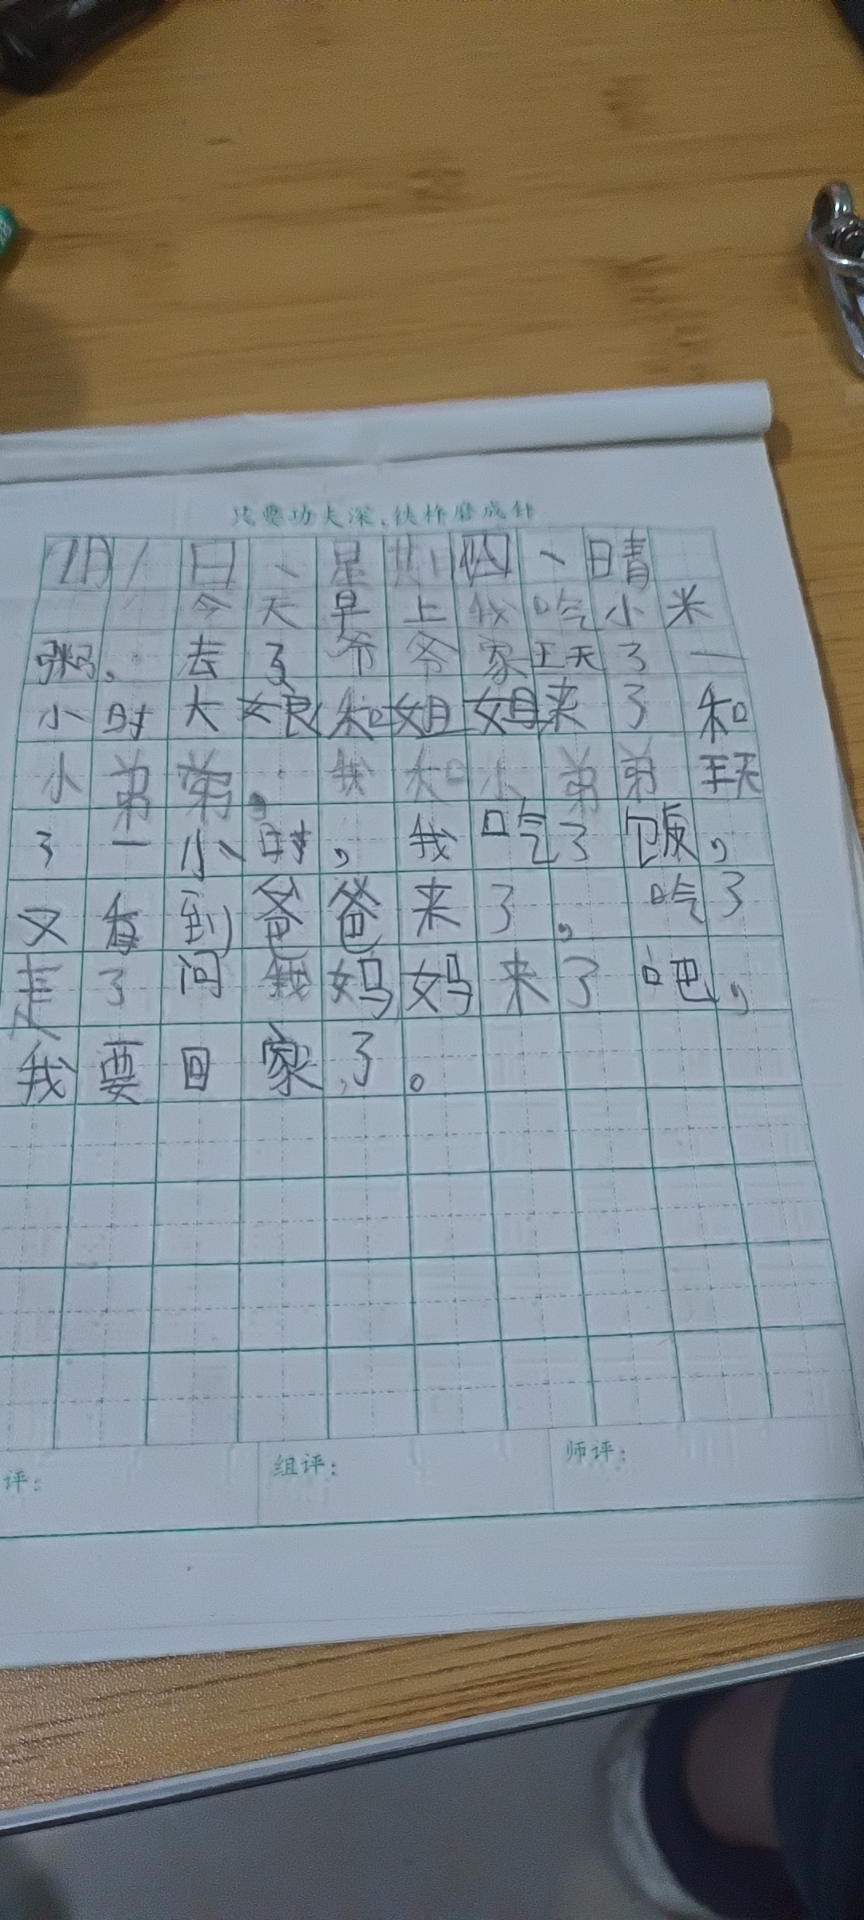 只要功夫深,铁杵磨成针
1月1日、星期四、晴
今天早上我吃小米
粥。去了爷爷家玩了一
小时大娘和姐姐来了和
小弟弟。我和小弟弟玩
了一小时,我吃了饭,
又看到爸爸来了,吃了
走了问我妈妈来了吧,
我要回家了。
评:
组评:
师评: